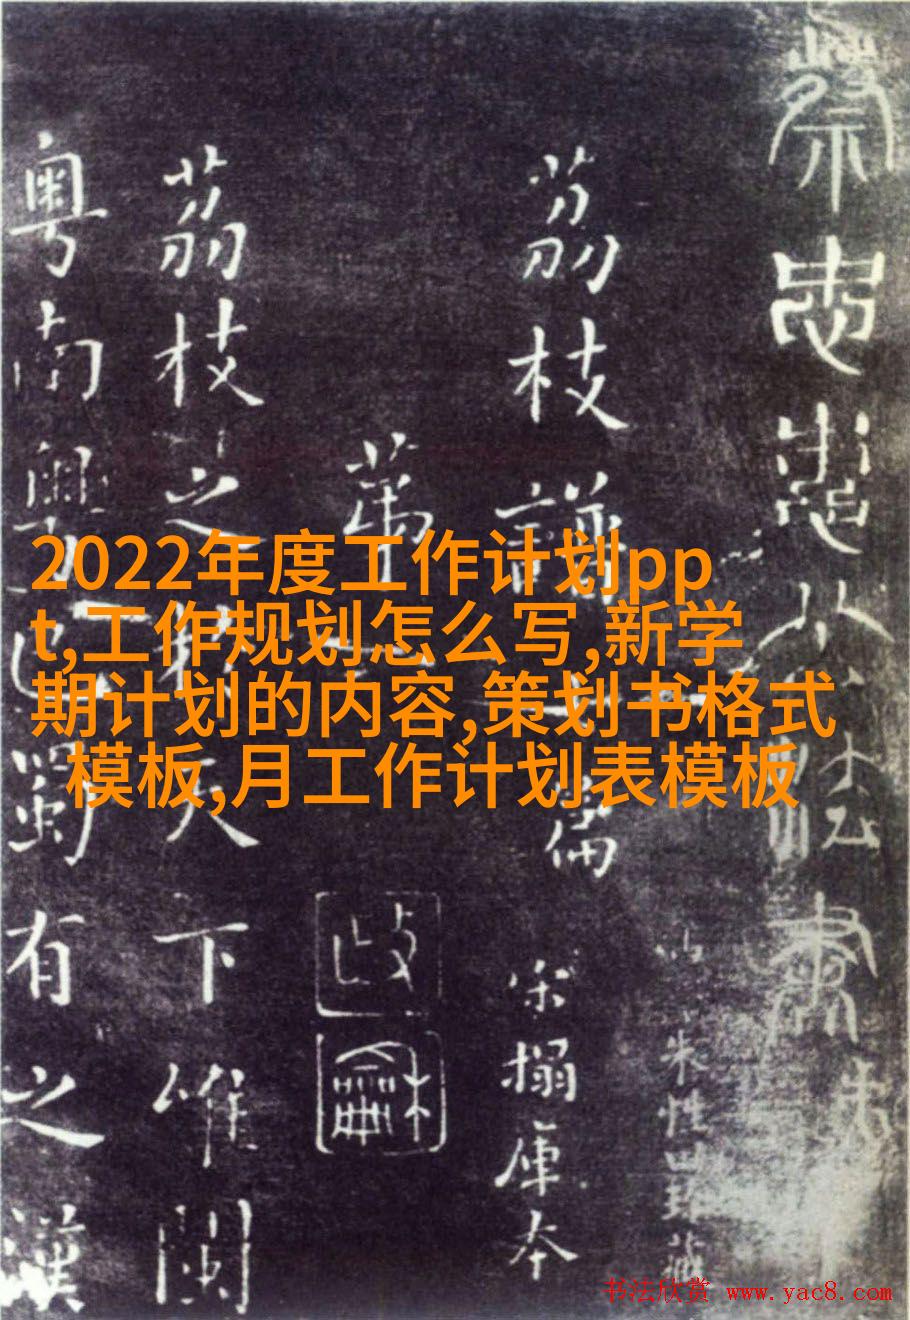 蔡忠惠公法书
宋搨庫本
荔枝譜
第一篇
荔枝之於天下唯閩
粤南粤巴蜀有之漢
2022年度工作计划pp
t,工作规划怎么写,新学
期计划的内容,策划书格式
模板,月工作计划表模板
书法欣赏 www.yac8.com